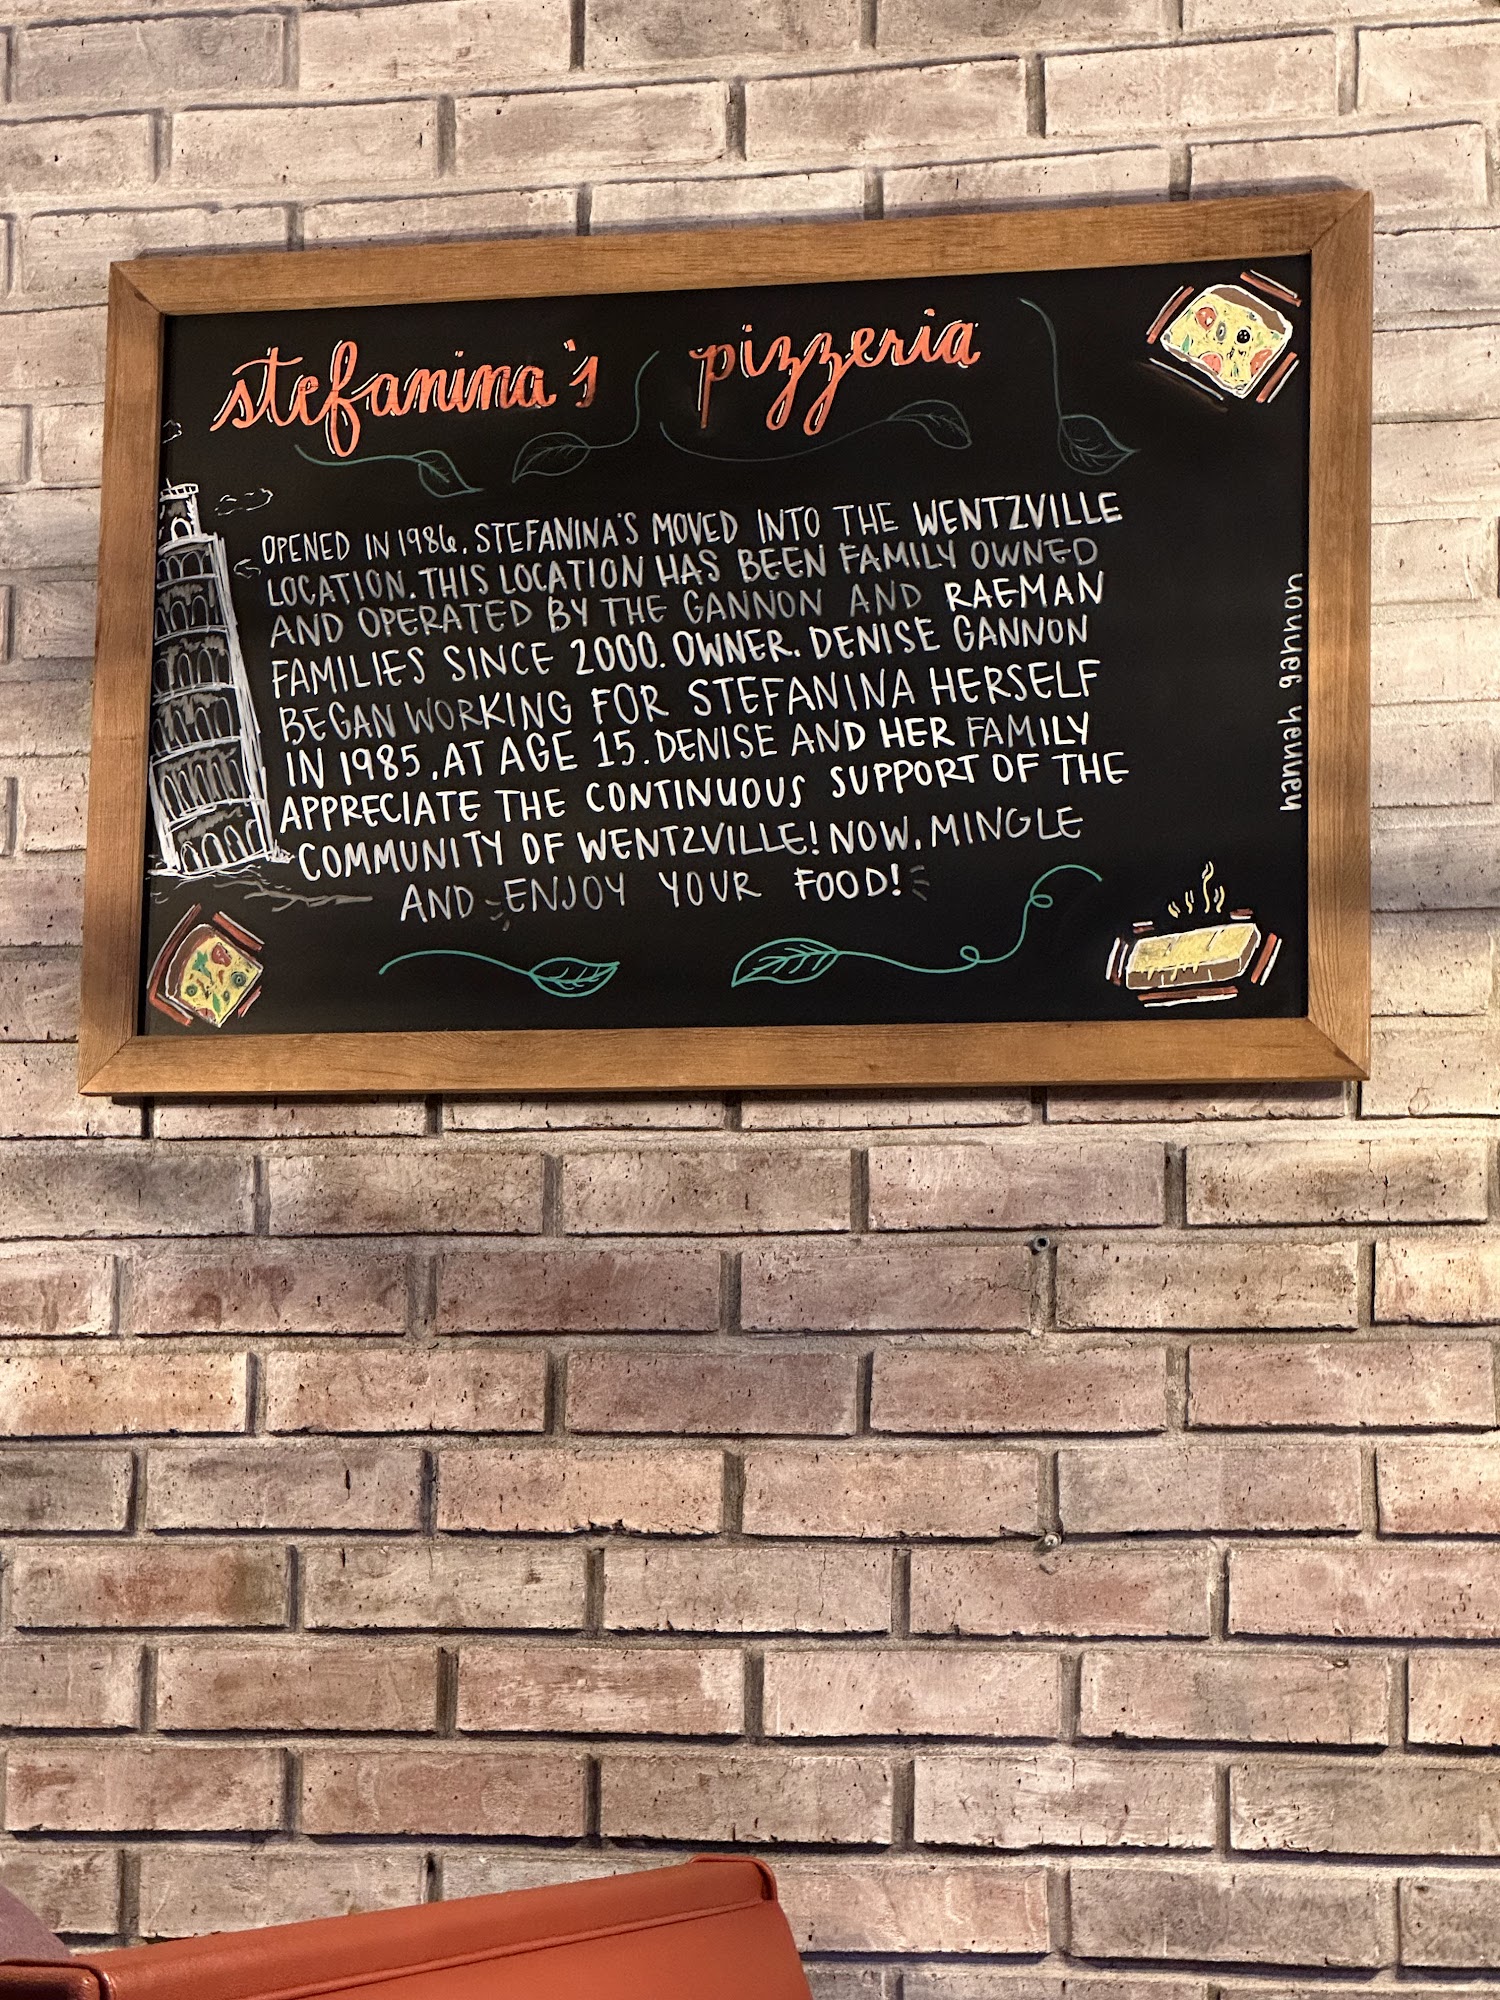 stefanina's pizzeria
OPENED IN 1986. STEFANINA'S MOVED INTO THE WENTZVILLE
LOCATION. THIS LOCATION HAS BEEN FAMILY OWNED
AND OPERATED BY THE GANNON AND RAEMAN
FAMILIES SINCE 2000. OWNER, DENISE GANNON
BEGAN WORKING FOR STEFANINA HERSELF
IN 1985, AT AGE 15. DENISE AND HER FAMILY
APPRECIATE THE CONTINUOUS SUPPORT OF THE
COMMUNITY OF WENTZVILLE! NOW, MINGLE
AND ENJOY YOUR FOOD!
hannah gannon